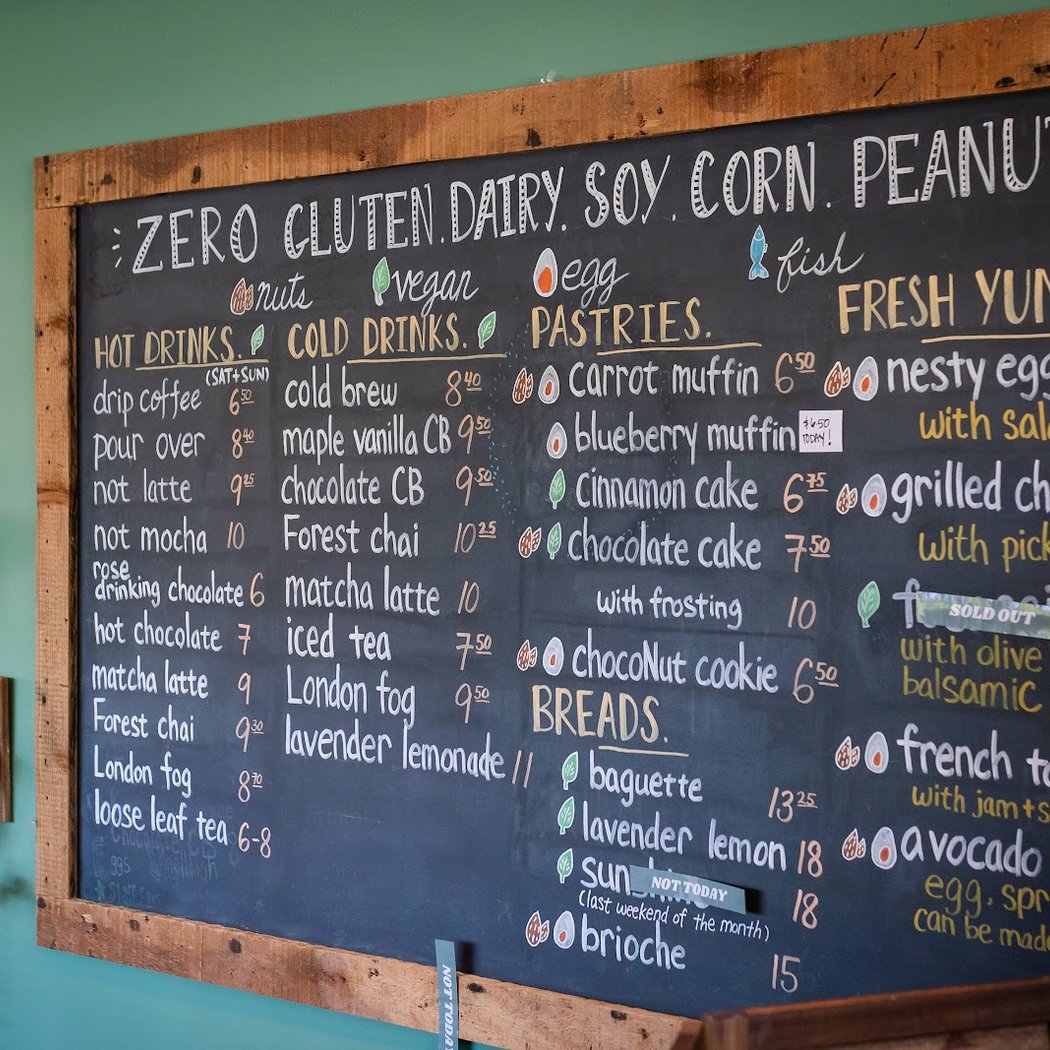 ZERO GLUTEN. DAIRY. SOY. CORN. PEANU
nuts vegan egg fish
HOT DRINKS.
(SAT+SUN)
drip coffee 6.50
pour over 8.40
not latte 9.25
not mocha 10
rose
drinking chocolate 6
hot chocolate 7
matcha latte 9
Forest chai 9.30
London fog 8.70
loose leaf tea 6-8
COLD DRINKS.
cold brew 8.40
maple vanilla CB 9.50
chocolate CB 9.50
Forest chai 10.25
matcha latte 10
iced tea 7.50
London fog 9.50
lavender lemonade 11
PASTRIES.
carrot muffin 6.50
blueberry muffin
$6.50
TODAY!
cinnamon cake 6.75
chocolate cake 7.50
with frosting 10
chocoNut cookie 6.50
BREADS.
baguette 13.25
lavender lemon 18
sunshine 18
NOT TODAY
(last weekend of the month)
brioche 15
NOT TODAY
FRESH YUM
nesty egg
with sal
grilled ch
with pick
SOLD OUT
with olive
balsamic
french to
with jam+s
avocado
egg, spr
can be made